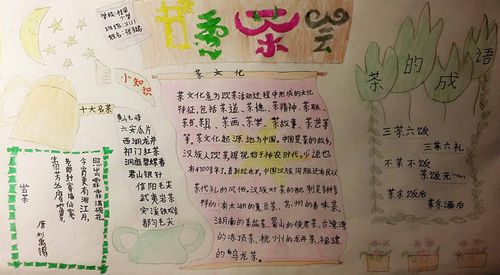 学校:
小学
班级:
姓名:
茶
小知识
十大名茶
黄山毛峰
六安瓜片
西湖龙井
祁门红茶
洞庭碧螺春
君山银针
信阳毛尖
武夷岩茶
安溪铁观音
都匀毛尖
尝茶
唐 刘禹锡
生拍芳丛鹰觜芽,
老郎封寄谪仙家。
今宵更有湘江月,
照出霏霏满碗花
茶文化
茶文化意为饮茶活动过程中形成的文化
特征,包括茶道、茶德、茶精神、茶联、
茶书、茶具、茶画、茶学、茶故事、茶艺等
等。茶文化起源地为中国。中国是茶的故乡,
汉族人饮茶据说始于神农时代,少说也
有4700多年了。直到现在,中国汉族同胞还有民以
茶代礼的风俗。汉族对茶的配制是多种多
样的:有太湖的熏豆茶、苏州的香味茶、
湖南的姜盐茶、蜀山的侠君茶、台湾
的冻顶茶、杭州的龙井茶、福建
的乌龙茶。
茶的成语
三茶六饭
三茶六礼
不茶不饭
茶饭无心
茶余饭后
茶余酒后